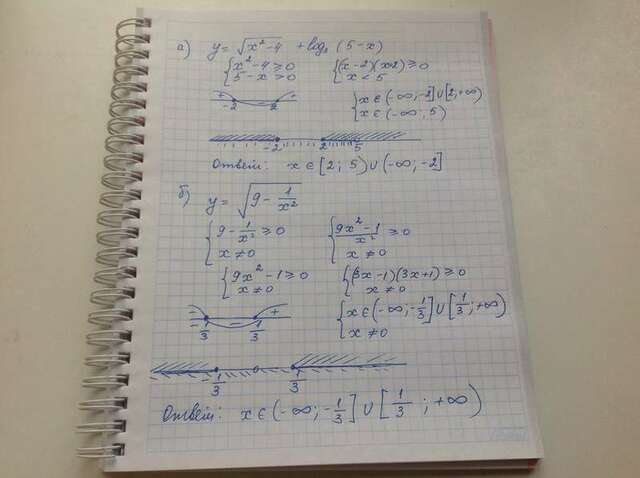 а) y = √(x²-4) + log₅ (5-x)
{x²-4 ≥ 0 {(x-2)(x+2) ≥ 0
{5-x > 0 {x < 5
+ - +
-2 2
{x ∈ (-∞; -2] ∪ [2; +∞)
{x ∈ (-∞; 5)
-2 2 5
Ответ: x ∈ [2; 5) ∪ (-∞; -2]
б) y = √(9 - 1/x²)
{9 - 1/x² ≥ 0 {(9x²-1)/x² ≥ 0
{x ≠ 0 {x ≠ 0
{9x²-1 ≥ 0 {(3x-1)(3x+1) ≥ 0
{x ≠ 0 {x ≠ 0
+ - +
-1/3 1/3
{x ∈ (-∞; -1/3] ∪ [1/3; +∞)
{x ≠ 0
-1/3 1/3
Ответ: x ∈ (-∞; -1/3] ∪ [1/3; +∞)